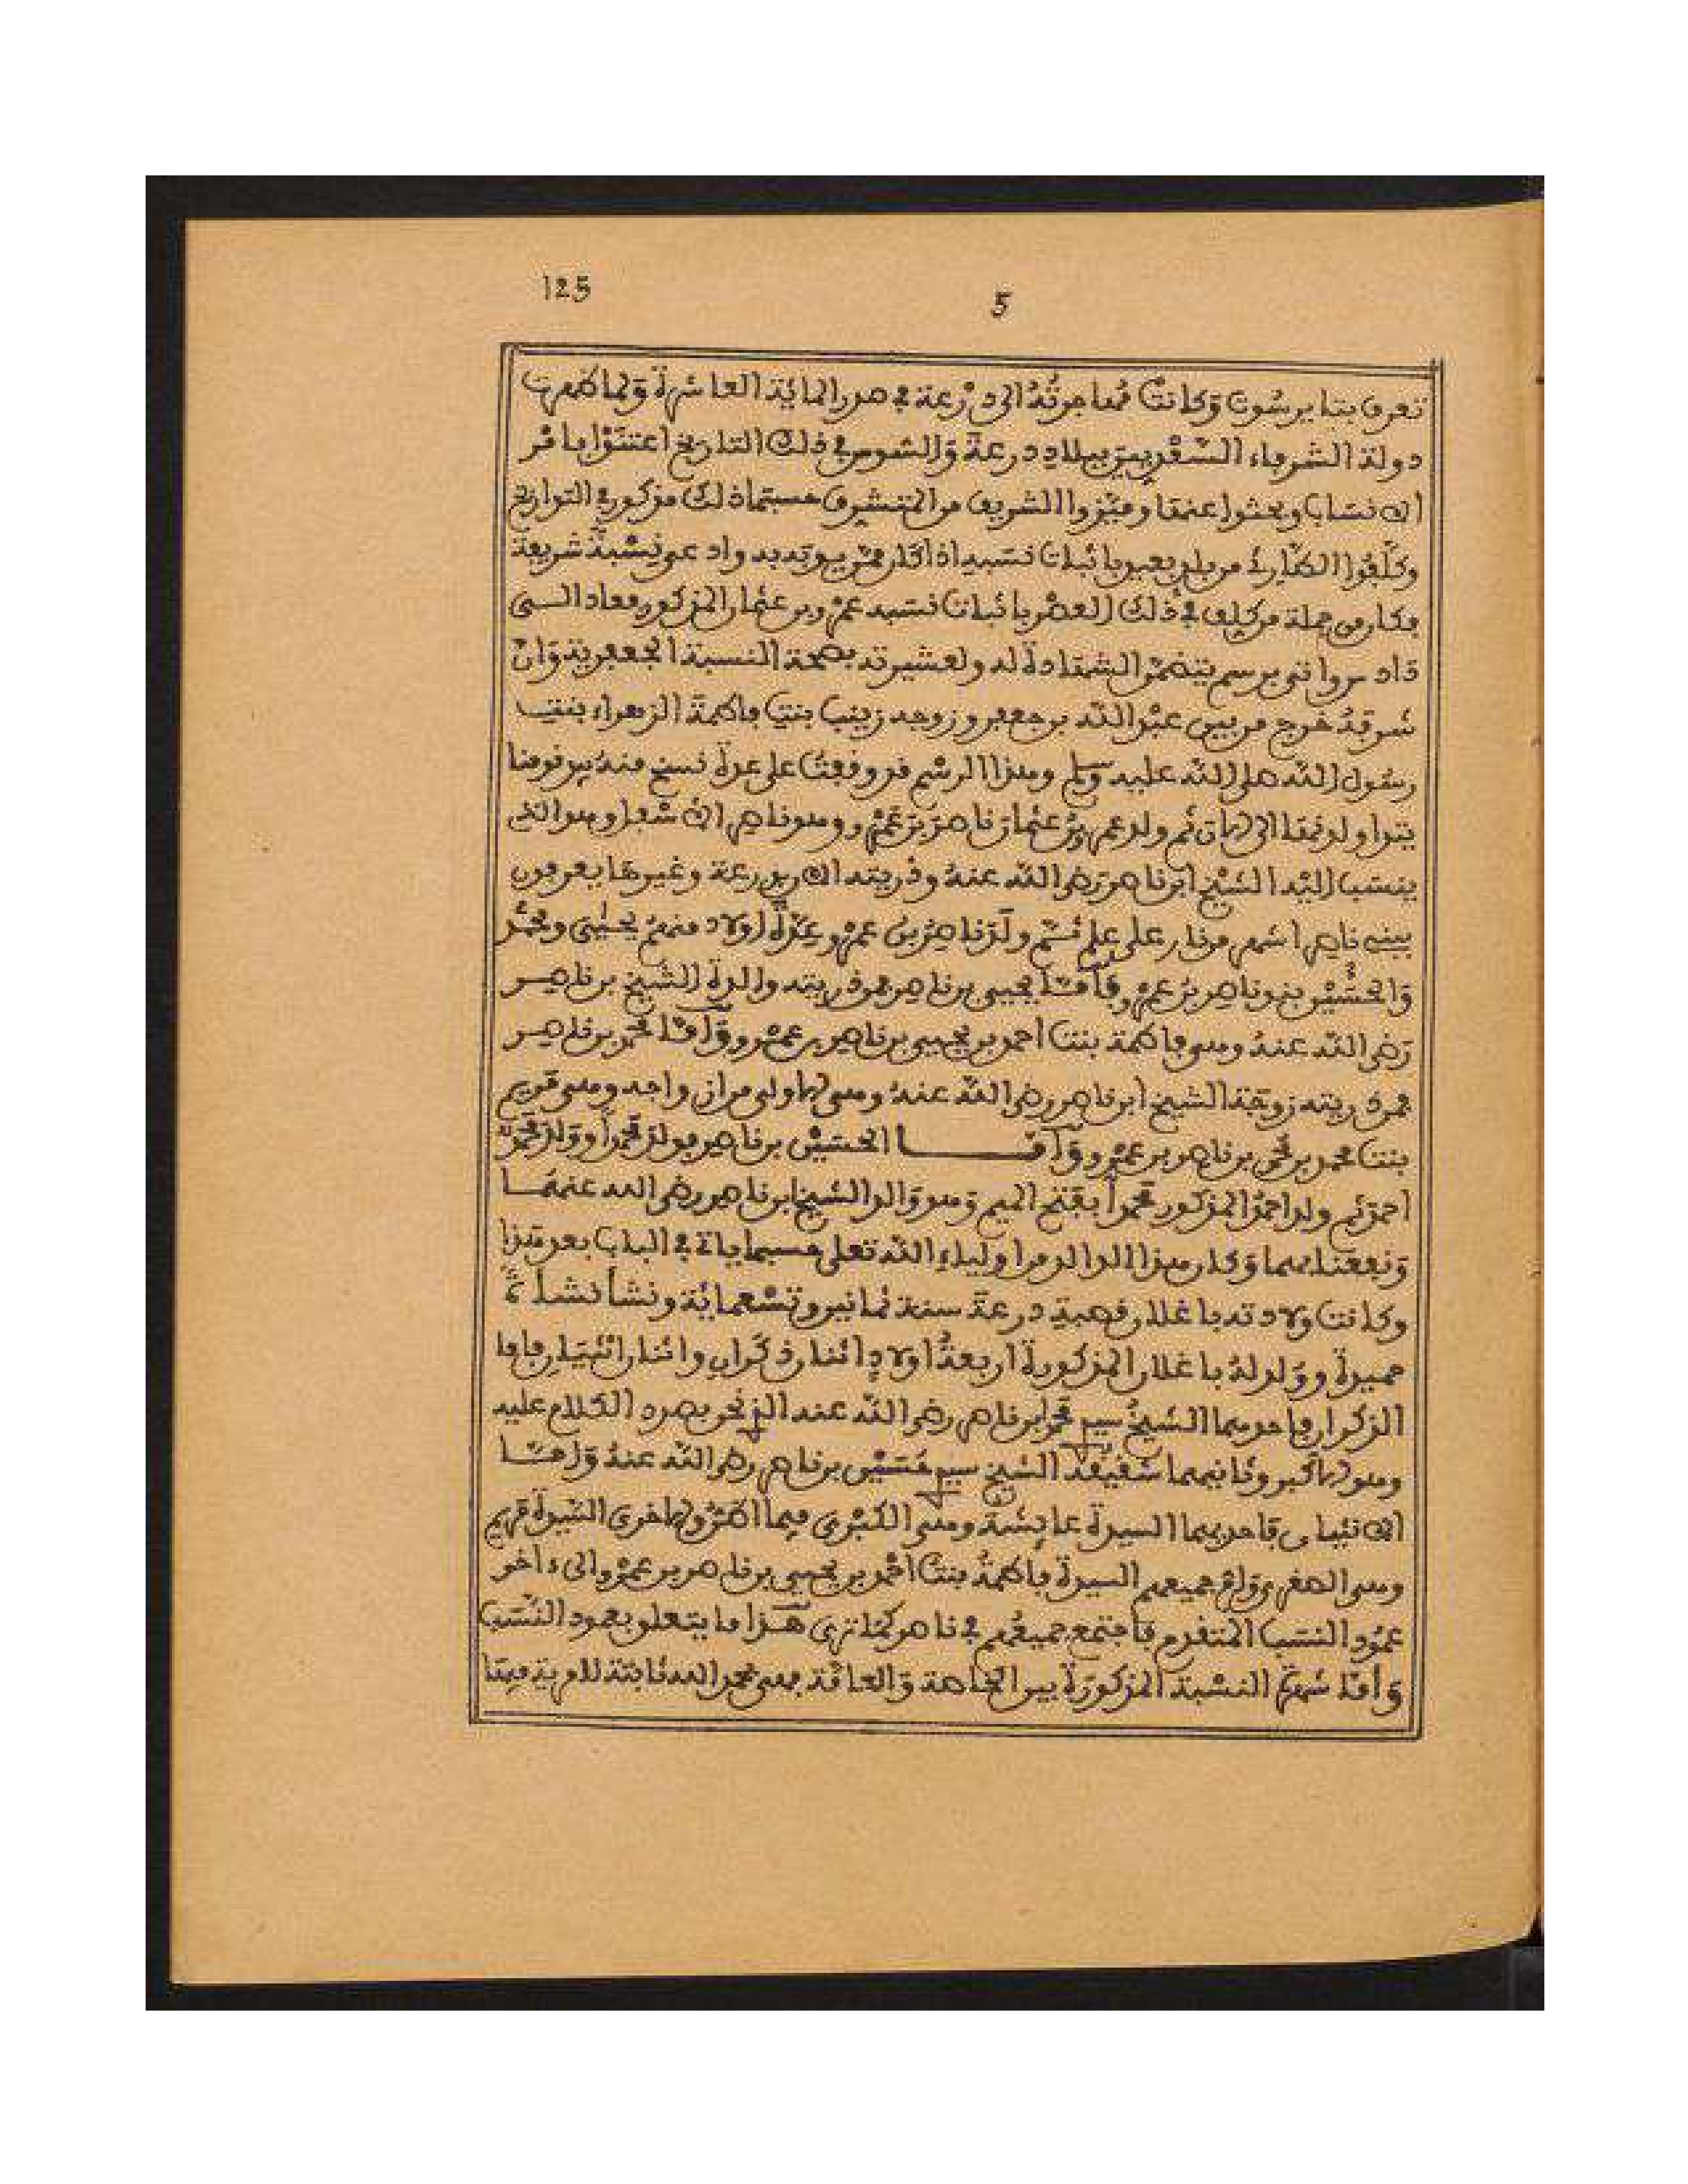 125
5
تعرف بتابرسوت وكانت مهاجرته الى درعة في صدر المائة العاشرة ولما ظهرت
دولة الشرفاء السعديين ببلاد درعة والسوس في ذلك التاريخ اعتنوا بامر
الانساب وبحثوا عنها وميزوا الشريف من المتشرف حسبما ذلك مذكور في التواريخ
وكلفوا الطارئ من بلد بعيد باثبات نسبه اذا كان ممن يوبه به وادعى نسبة شريفة
فكان من جملة من كلف في ذلك العصر باثبات نسبه عمرو بن عثمان المذكور فعاد الى
داد س واتى برسم يتضمن الشهادة له ولعشيرته بصحة النسبة الجعفرية وان
شرفه خرج من بيت عبد الله بن جعفر وزوجه زينب بنت فاطمة الزهراء بنت
رسول الله صلى الله عليه وسلم وهذا الرسم قد وقفت على عدة نسخ منه بيد قومنا
يتداولونها الى الان ثم ولد عمرو بن عثمان ناصر بن عمرو وهو ناصر الاسفل وهو الذي
ينتسب اليه الشيخ ابن ناصر رضي الله عنه وذريته الان بدرعة وغيرها يعرفون
ببني ناصر اشهر من نار على علم ثم ولد ناصر بن عمرو عدة اولاد منهم يحيى ومحمد
والحسين بنو ناصر بن عمرو فاما يحيى بن ناصر فمن ذريته والدة الشيخ بن ناصر
رضي الله عنه وهي فاطمة بنت احمد بن يحيى بن ناصر بن عمرو واما محمد بن ناصر
فمن ذريته زوجة الشيخ ابن ناصر رضي الله عنه وهي الاولى من ازواجه وهي مريم
بنت محمد بن محمد بن ناصر بن عمرو واما الحسين بن ناصر فولد محمدا وولد محمد
احمد ثم ولد احمد المذكور محمدا بفتح الميم وهو والد الشيخ ابن ناصر رضي الله عنهما
ونفعنا بهما وكان هذا الوالد من اولياء الله تعلى حسبما ياتي في الباب بعد هذا
وكانت ولادته باغلان قصبة درعة سنة ثمانين وتسعمائة ونشأ نشأة
حميدة وولد له باغلان المذكورة اربعة اولاد اثنان ذكران واثنان انثيان فاما
الذكران فاحدهما الشيخ سيدي محمد ابن ناصر رضي الله عنه الذي نحن بصدد الكلام عليه
وهو الاكبر وثانيهما شقيقه الشيخ سيدي حسين بن ناصر رضي الله عنه واما
الانثيان فاحديهما السيدة عايشة وهي الكبرى فيما اظن والاخرى السيدة مريم
وهي الصغرى وام جميعهم السيدة فاطمة بنت احمد بن يحيى بن ناصر بن عمرو الى ءاخر
عمود النسب المتقدم فاجتمع جميعهم في ناصر كما ترى هذا ما يتعلق بعمود النسب
واما شهرة النسبة المذكورة بين الخاصة والعامة فهي بحمد الله ثابتة لا مرية فيها